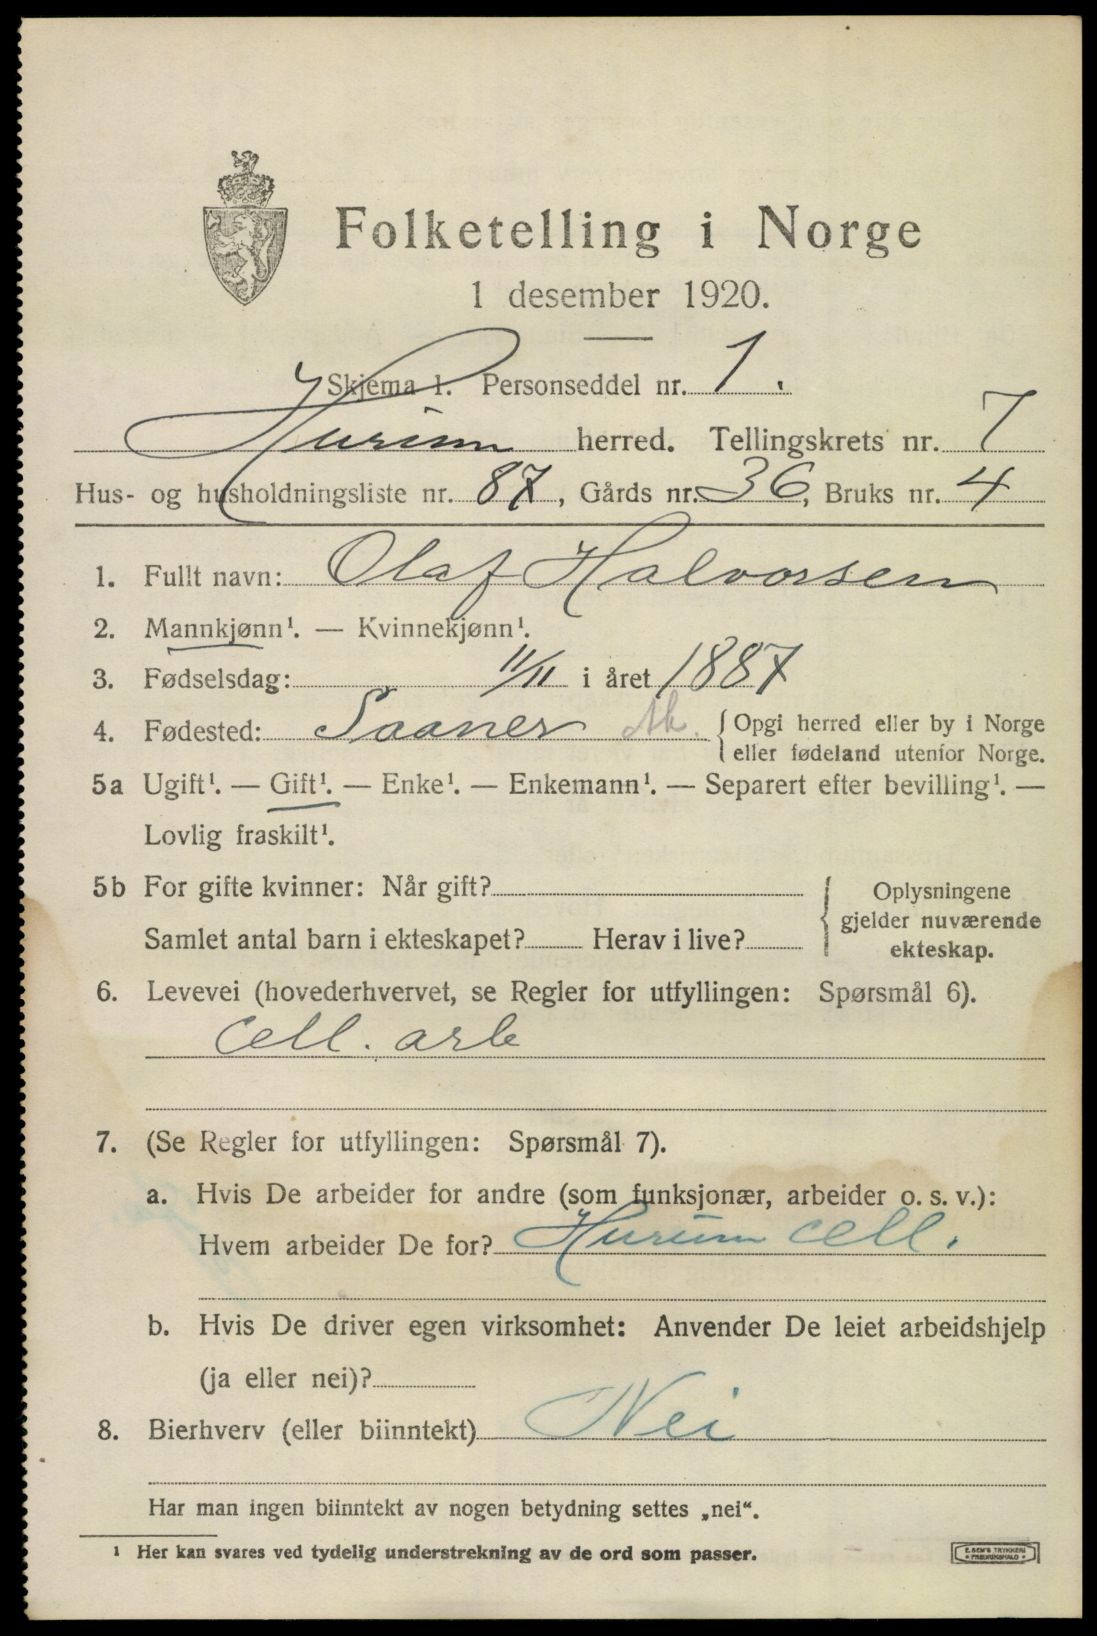 Folketelling i Norge
1 desember 1920.
Skjema 1. Personseddel nr. 1.
Hurum herred. Tellingskrets nr. 7
Hus- og husholdningsliste nr. 87, Gårds nr. 36, Bruks nr. 4
1. Fullt navn: Olaf Halvorsen
2. Mannkjønn¹. — Kvinnekjønn¹.
3. Fødselsdag: 11/11 i året 1887
4. Fødested: Saaner Ak. Opgi herred eller by i Norge
eller fødeland utenfor Norge.
5a Ugift¹. — Gift¹. — Enke¹. — Enkemann¹. — Separert efter bevilling¹. —
Lovlig fraskilt¹.
5b For gifte kvinner: Når gift?
Samlet antal barn i ekteskapet? Herav i live?
Oplysningene
gjelder nuværende
ekteskap.
6. Levevei (hovederhvervet, se Regler for utfyllingen: Spørsmål 6).
Cell. arb
7. (Se Regler for utfyllingen: Spørsmål 7).
a. Hvis De arbeider for andre (som funksjonær, arbeider o. s. v.):
Hvem arbeider De for? Hurum Cell.
b. Hvis De driver egen virksomhet: Anvender De leiet arbeidshjelp
(ja eller nei)?
8. Bierhverv (eller biinntekt) Nei
Har man ingen biinntekt av nogen betydning settes „nei“.
¹ Her kan svares ved tydelig understrekning av de ord som passer.
E. SEM'S TRYKKERI
FREDRIKSHALD